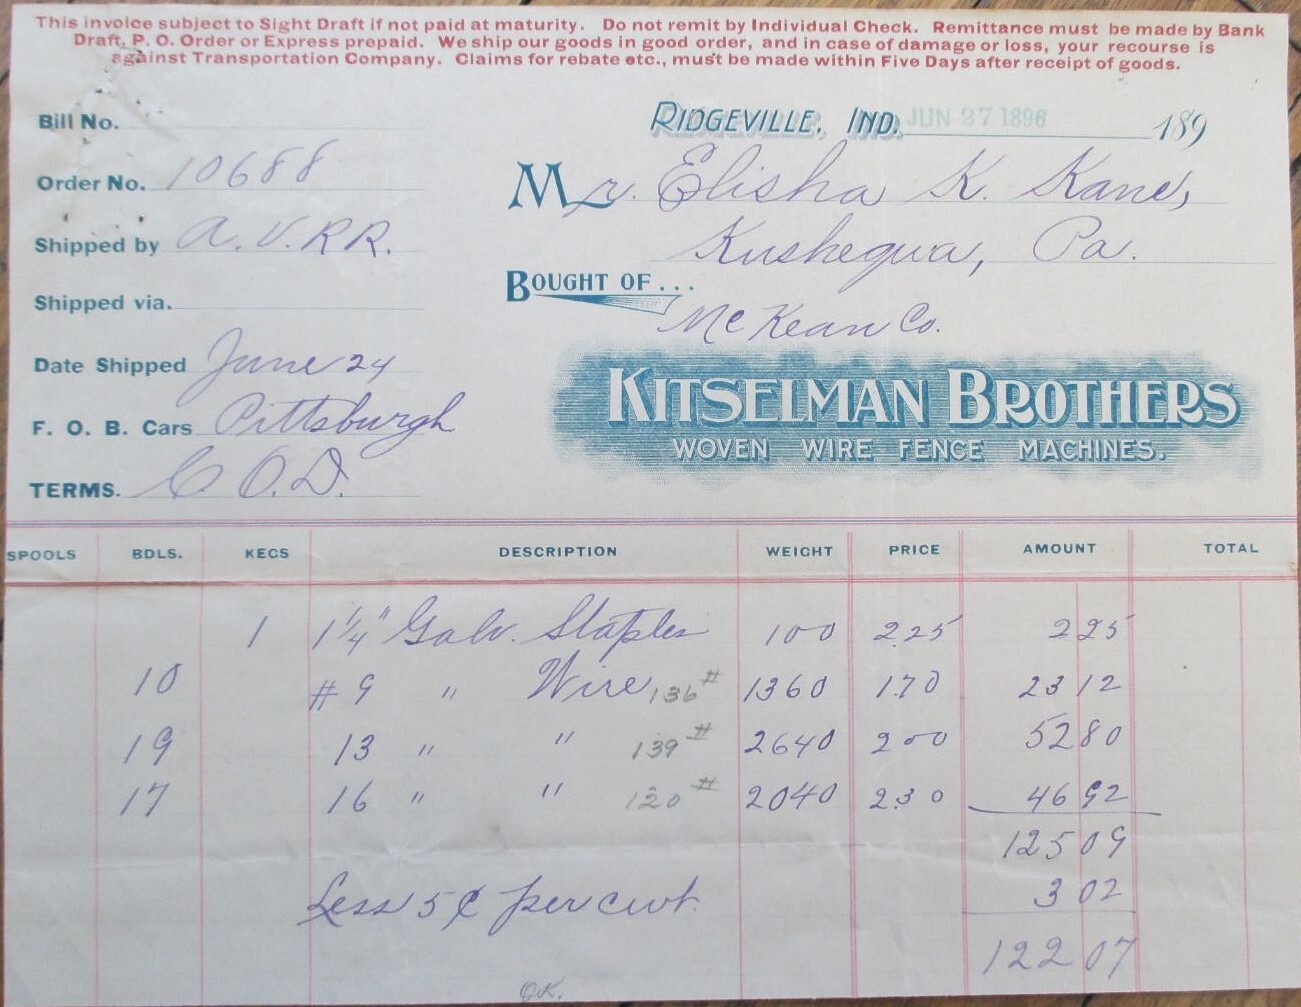 This invoice subject to Sight Draft if not paid at maturity. Do not remit by Individual Check. Remittance must be made by Bank
Draft, P. O. Order or Express prepaid. We ship our goods in good order, and in case of damage or loss, your recourse is
against Transportation Company. Claims for rebate etc., must be made within Five Days after receipt of goods.
Bill No.
RIDGEVILLE, IND. JUN 27 1896 189
Order No. 10688
Mr. Elisha K. Kane,
Shipped by A. V. R R.
Kushequa, Pa.
BOUGHT OF...
Shipped via.
McKean Co.
Date Shipped June 24
KITSELMAN BROTHERS
F. O. B. Cars Pittsburgh
WOVEN WIRE FENCE MACHINES.
TERMS. C O. D.
SPOOLS BDLS. KEGS DESCRIPTION WEIGHT PRICE AMOUNT TOTAL
1 1 1/4" Galv. Staples 100 2.25 2 25
10 # 9 " Wire 136# 1360 1.70 23 12
19 13 " " 139# 2640 2 00 52 80
17 16 " " 120# 2040 2.30 46 92
125 09
Less 5¢ per cwt. 3 02
122 07
O.K.